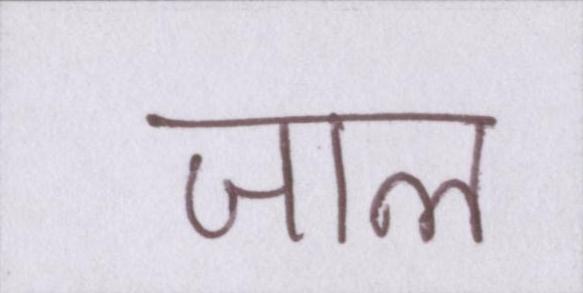 जाल